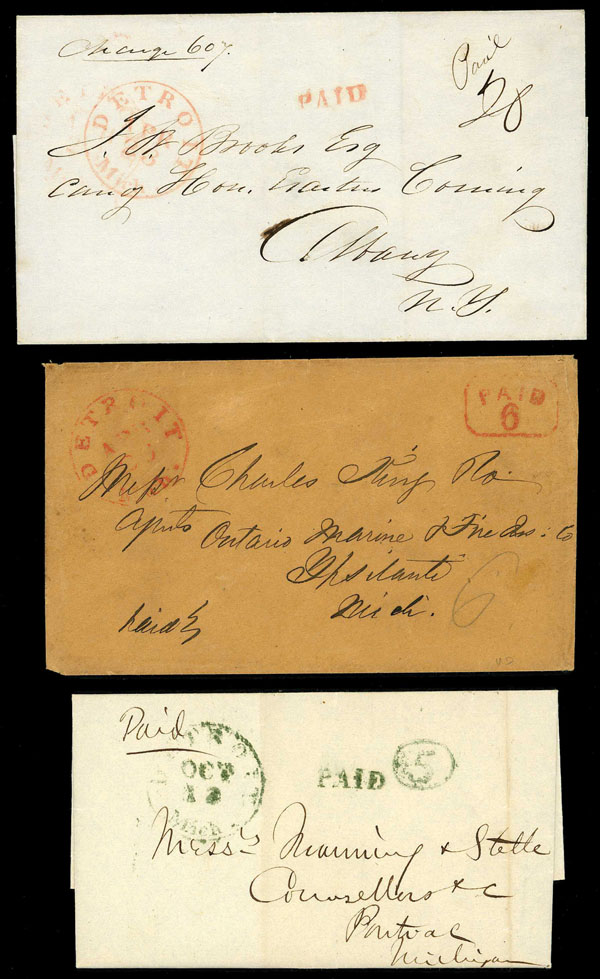 Charge 607.
PAID
Paid
28
DETRO
APR
Mich
J. W. Brooks Esq
care Hon. Erastus Corning
Albany
N. Y.
DETROIT
PAID
6
Messrs Charles King Co.
Agents Ontario Marine & Fire Ass: Co
Ypsilanti
Mich.
6
Paid
DETROIT
OCT
12
Mich
PAID
5
Messrs Manning & Stelle
Counsellors &c
Pontiac
Michigan